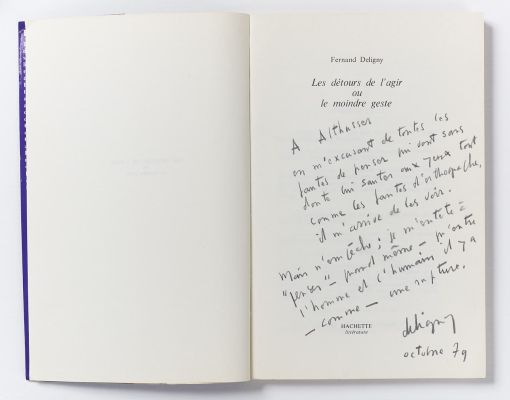 Fernand Deligny
Les détours de l'agir
ou
le moindre geste
A Althusser
en m'excusant de toutes les
fautes de penser qui vont sans
doute lui sauter aux yeux tout
comme les fautes d'orthographe,
il m'arrive de les voir.
Mais n'empêche ; je m'entête à
"penser" quand même — qu'entre
l'homme et l'humain il y a
— comme — une rupture.
HACHETTE
littérature
deligny
octobre 79